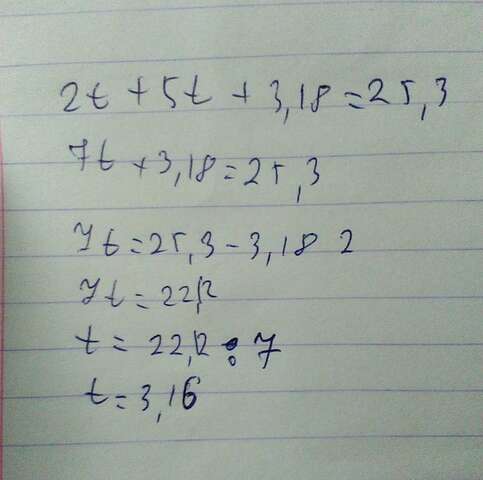 2t + 5t + 3,18 = 25,3
7t + 3,18 = 25,3
7t = 25,3 - 3,18 2
7t = 22,12
t = 22,12 : 7
t = 3,16